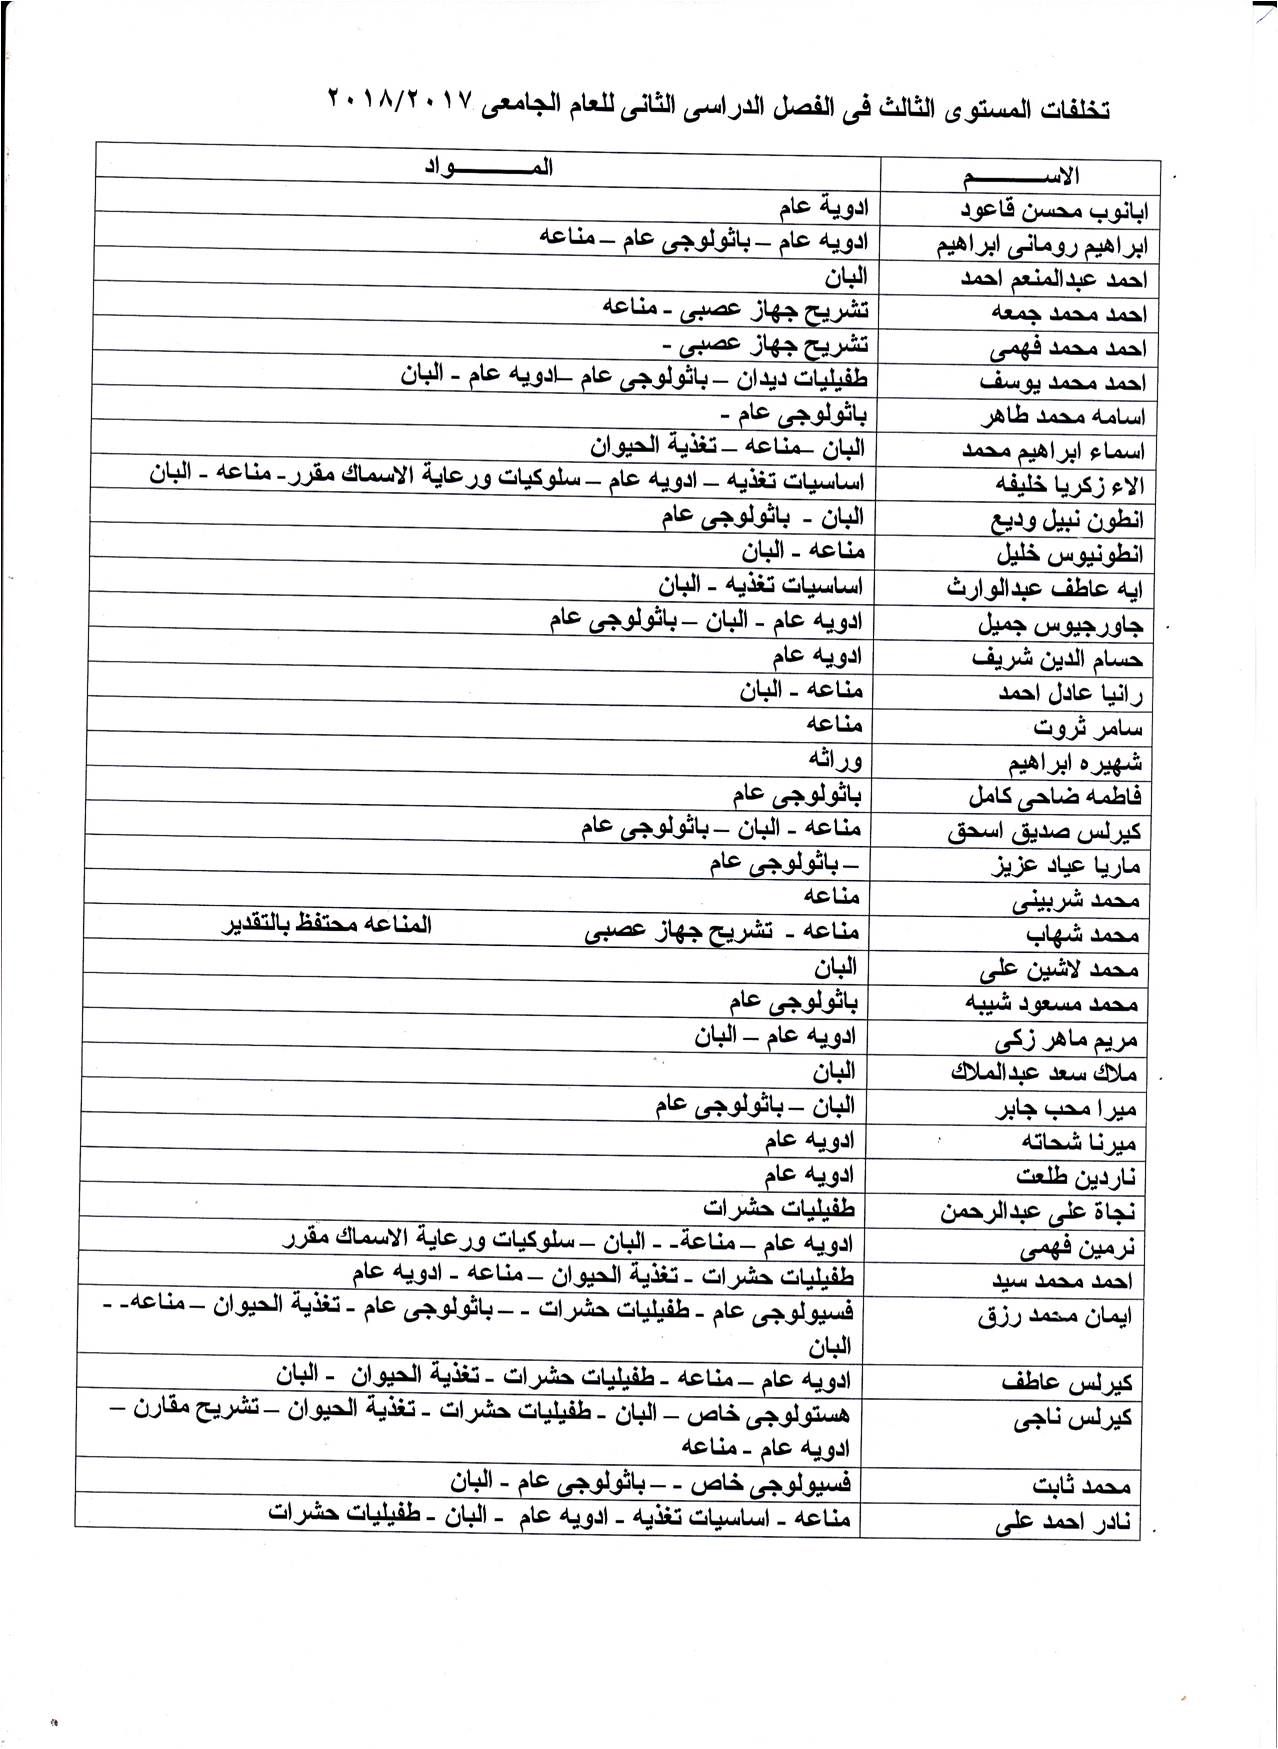 تخلفات المستوى الثالث فى الفصل الدراسى الثانى للعام الجامعى ٢٠١٨/٢٠١٧
الاســــــــم المــــــــواد
ابانوب محسن قاعود ادوية عام
ابراهيم رومانى ابراهيم ادويه عام – باثولوجى عام – مناعه
احمد عبدالمنعم احمد البان
احمد محمد جمعه تشريح جهاز عصبى - مناعه
احمد محمد فهمى تشريح جهاز عصبى -
احمد محمد يوسف طفيليات ديدان – باثولوجى عام –ادويه عام - البان
اسامه محمد طاهر باثولوجى عام -
اسماء ابراهيم محمد البان –مناعه – تغذية الحيوان
الاء زكريا خليفه اساسيات تغذيه – ادويه عام – سلوكيات ورعاية الاسماك مقرر- مناعه - البان
انطون نبيل وديع البان - باثولوجى عام
انطونيوس خليل مناعه - البان
ايه عاطف عبدالوارث اساسيات تغذيه - البان
جاورجيوس جميل ادويه عام - البان – باثولوجى عام
حسام الدين شريف ادويه عام
رانيا عادل احمد مناعه - البان
سامر ثروت مناعه
شهيره ابراهيم وراثه
فاطمه ضاحى كامل باثولوجى عام
كيرلس صديق اسحق مناعه - البان – باثولوجى عام
ماريا عياد عزيز – باثولوجى عام
محمد شربينى مناعه
محمد شهاب مناعه - تشريح جهاز عصبى المناعه محتفظ بالتقدير
محمد لاشين على البان
محمد مسعود شيبه باثولوجى عام
مريم ماهر زكى ادويه عام – البان
ملاك سعد عبدالملاك البان
ميرا محب جابر البان – باثولوجى عام
ميرنا شحاته ادويه عام
ناردين طلعت ادويه عام
نجاة على عبدالرحمن طفيليات حشرات
نرمين فهمى ادويه عام – مناعة- - البان – سلوكيات ورعاية الاسماك مقرر
احمد محمد سيد طفيليات حشرات - تغذية الحيوان – مناعه - ادويه عام
ايمان محمد رزق فسيولوجى عام - طفيليات حشرات - – باثولوجى عام - تغذية الحيوان – مناعه- -
البان
كيرلس عاطف ادويه عام – مناعه - طفيليات حشرات - تغذية الحيوان - البان
كيرلس ناجى هستولوجى خاص – البان - طفيليات حشرات - تغذية الحيوان – تشريح مقارن –
ادويه عام - مناعه
محمد ثابت فسيولوجى خاص - – باثولوجى عام - البان
نادر احمد على مناعه - اساسيات تغذيه - ادويه عام - البان - طفيليات حشرات